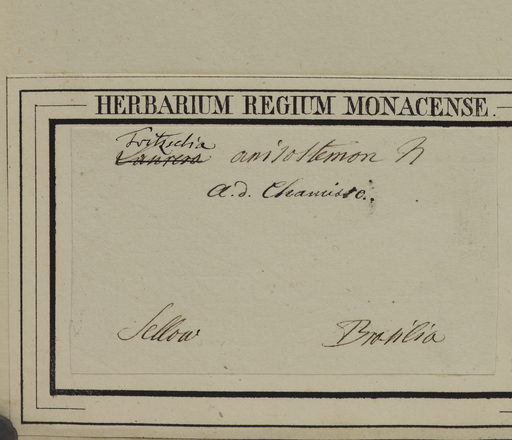 HERBARIUM REGIUM MONACENSE.
Fritzschia
anisostemon
a. d. Chamisso.
Sellow Brasilia